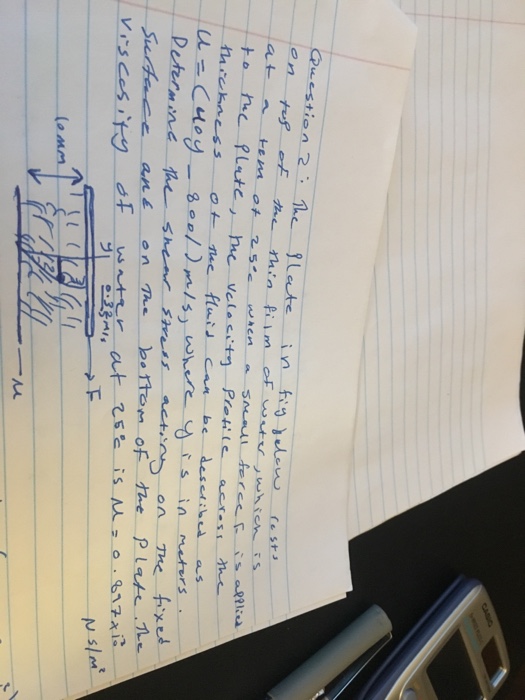 Question 2: The Plate in fig below rests
on top of the thin film of water, which is
at a tem of 25°c when a small force F is applied
to the Plate, the velocity Profile across the
thickness of the fluid can be described as
u = (40y - 800y²) m/s, where y is in meters.
Determine the shear stress acting on the fixed
Surface and on the bottom of the Plate. The
viscosity of water at 25°c is M = 0.897x10³
Ns/m²
y
0.32m/s
F
10mm
u
CASIO